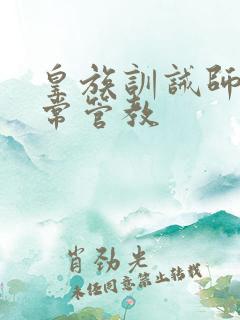 皇族訓誡師
常管教
肖劲光
未经同意禁止转载